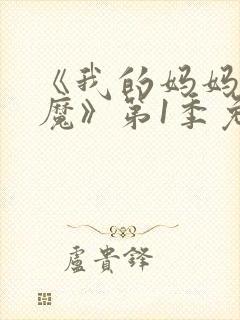 《我的妈妈
魔》第1季免
盧貴鋒